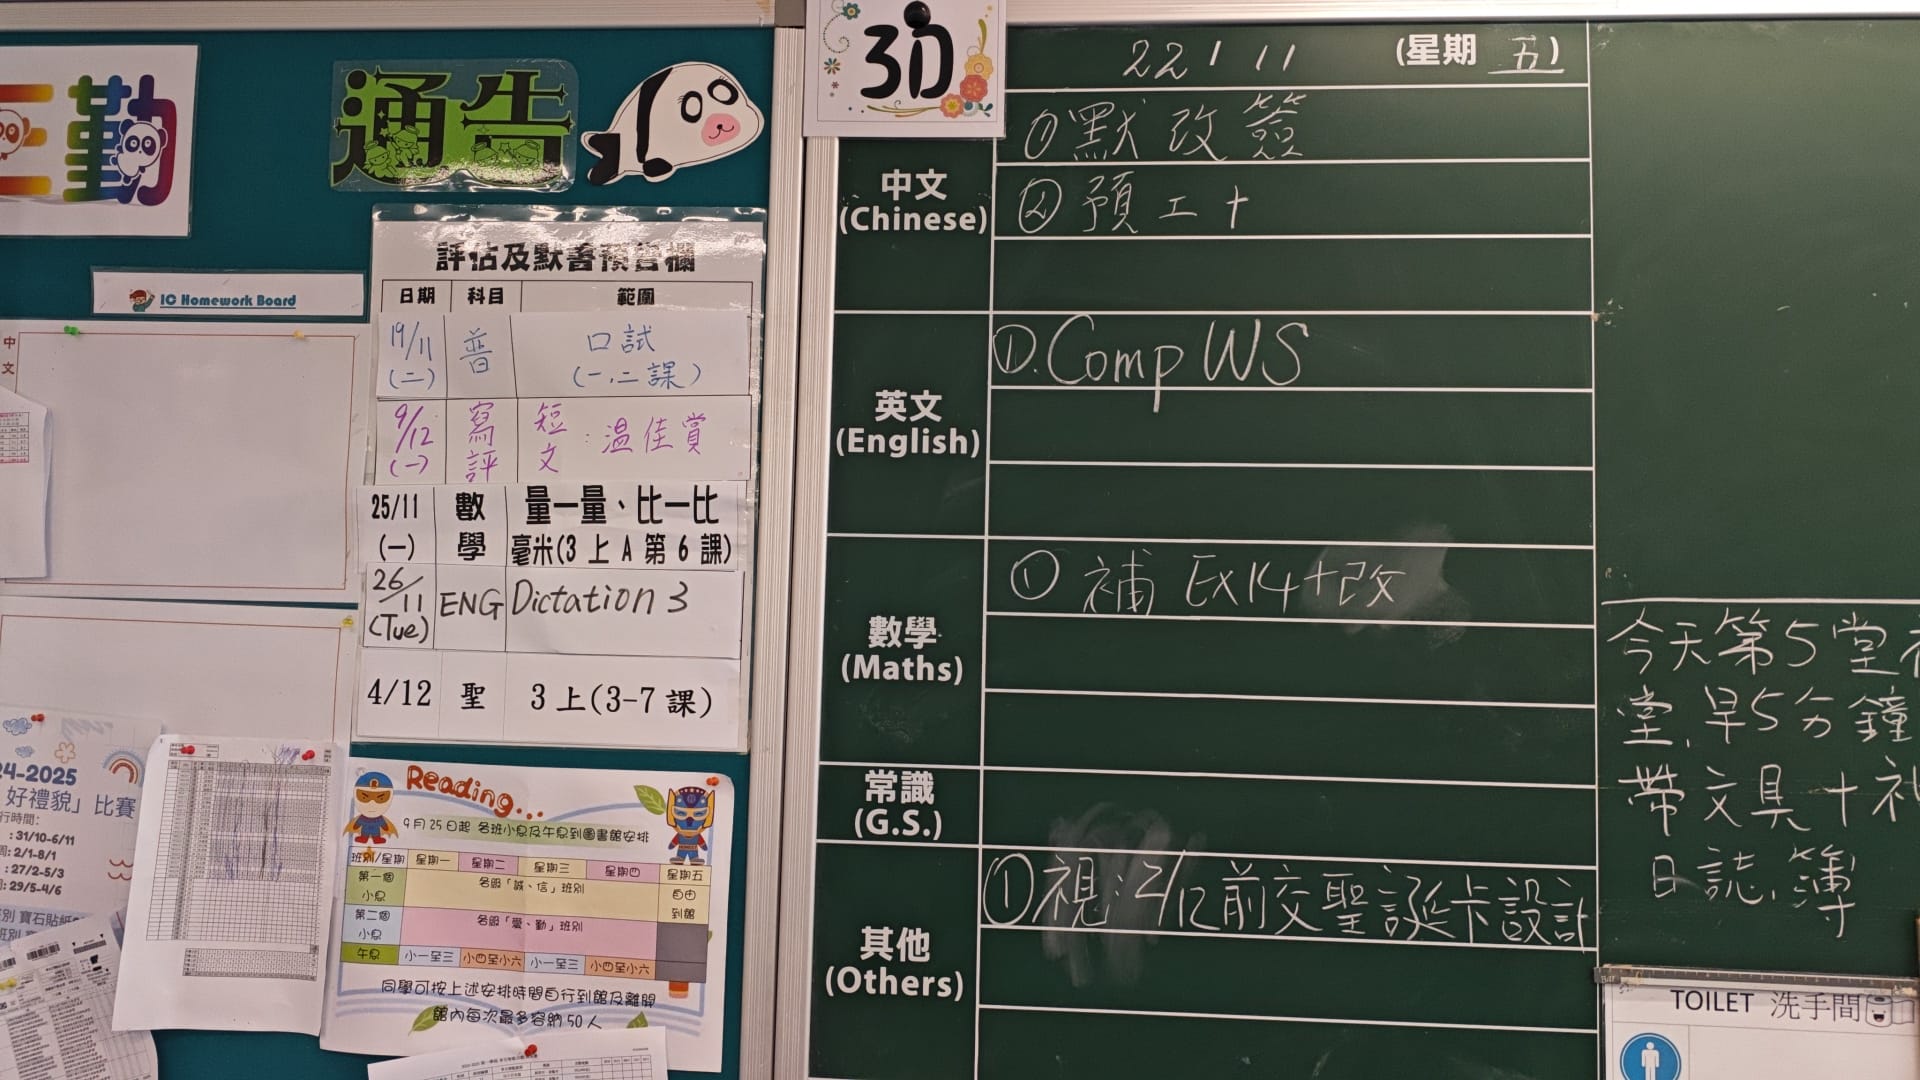 勤
通告
IC Homework Board
中
文
評估及默書預告欄
日期 科目 範圍
19/11 (二) 普 口試 (一、二課)
9/12 (一) 寫評 短文:溫佳賞
25/11 (一) 數學 量一量、比一比 毫米(3 上 A 第 6 課)
26/11 (Tue) ENG Dictation 3
4/12 聖 3 上(3-7 課)
24-2025
好禮貌」比賽
行時間:
: 31/10-6/11
: 2/1-8/1
: 27/2-5/3
: 29/5-4/6
Reading...
9月25日起 各班小息及午息到圖書館安排
班別/星期 星期一 星期二 星期三 星期四 星期五
第一個小息 各級「誠、信」班別 自由到館
第二個小息 各級「愛、勤」班別
午息 小一至三 小四至小六 小一至三 小四至小六
同學可按上述安排時間自行到館及離開
館內每次最多容納50人
22/11 (星期 五)
中文 (Chinese)
①默改簽
②預工+
英文 (English)
①.Comp WS
數學 (Maths)
① 補 Ex14+改
常識 (G.S.)
其他 (Others)
①視:2/12前交聖誕卡設計
今天第5堂
堂,早5分鐘
帶文具+
日誌,簿
TOILET 洗手間